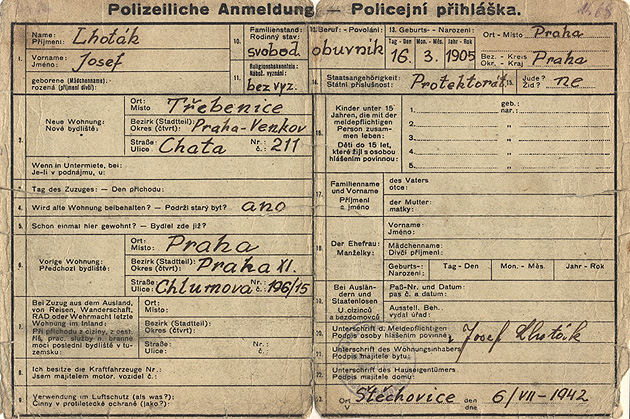 Polizeiliche Anmeldung — Policejní přihláška.
Name:
Příjmení: Lhoták
1. Vorname:
Jméno: Josef
geborene (Mädchenname).
rozená (příjmení dívčí):
10. Familienstand:
Rodinný stav:
svobod.
11. Religionsbekenntnis:
Nábož. vyznání:
bez vyz.
12. Beruf: - Povolání:
obuvník
13. Geburts- - Narození:
Tag - Den Mon. - Měs. Jahr - Rok
16. 3. 1905
Ort - Místo Praha
Bez. - Kreis
Okr. - Kraj Praha
14. Staatsangehörigkeit:
Státní příslušnost: Protektorát
15. Jude?
Žid? ne
2. Neue Wohnung:
Nové bydliště:
Ort:
Místo Třebenice
Bezirk (Stadtteil):
Okres (čtvrt): Praha-Venkov
Straße
Ulice: Chata Nr.:
č.: 211
Wenn in Untermiete, bei:
Je-li v podnájmu, u:
3. Tag des Zuzuges: — Den příchodu:
4. Wird alte Wohnung beibehalten? — Podrží starý byt? ano
5. Schon einmal hier gewohnt? — Bydlel zde již?
6. Vorige Wohnung:
Předchozí bydliště:
Ort:
Místo Praha
Bezirk (Stadtteil):
Okres (čtvrt): Praha XI.
Straße
Ulice: Chlumova Nr.:
č.: 196/15
7. Bei Zuzug aus dem Ausland,
von Reisen, Wanderschaft,
RAD oder Wehrmacht letzte
Wohnung im Inland:
Při příchodu z ciziny, z cest.
říš. prac. služby n. branné
moci poslední bydliště v tu-
zemsku:
Ort:
Místo
Bezirk (Stadtteil):
Okres (čtvrt):
Straße
Ulice: Nr.:
č.:
8. Ich besitze die Kraftfahrzeuge Nr.:
Jsem majitelem motor. vozidel č.:
9. Verwendung im Luftschutz (als was?):
Činný v protiletecké ochraně (jako?):
16. Kinder unter 15
Jahren, die mit der
meldepflichtigen
Person zusam-
men leben:
Děti do 15 let,
které žijí s osobou
hlášením povinnou:
1. geb.:
nar.:
2. "
3. "
4. "
5. "
17. Familienname
und Vorname
Příjmení
a jméno
des Vaters
otce:
der Mutter:
matky:
18. Der Ehefrau:
Manželky:
Vorname:
Jméno:
Mädchenname:
Dívčí příjmení:
Geburts-:
Narození: Tag - Den Mon. - Měs. Jahr - Rok
19. Bei Auslän-
dern und
Staatenlosen
U cizinců
a bezdomovců
Paß-Nr. und Datum:
pas č. a datum:
Ausstell. Beh.
vydal úřad:
20. Unterschrift d. Meldepflichtigen
Podpis osoby hlášením povinné: Josef Lhoták
21. Unterschrift des Wohnungsinhabers
Podpis majitele bytu:
22. Unterschrift des Hauseigentümers
Podpis majitele domu:
Ort
V Štěchovice den
dne 6/VII - 1942